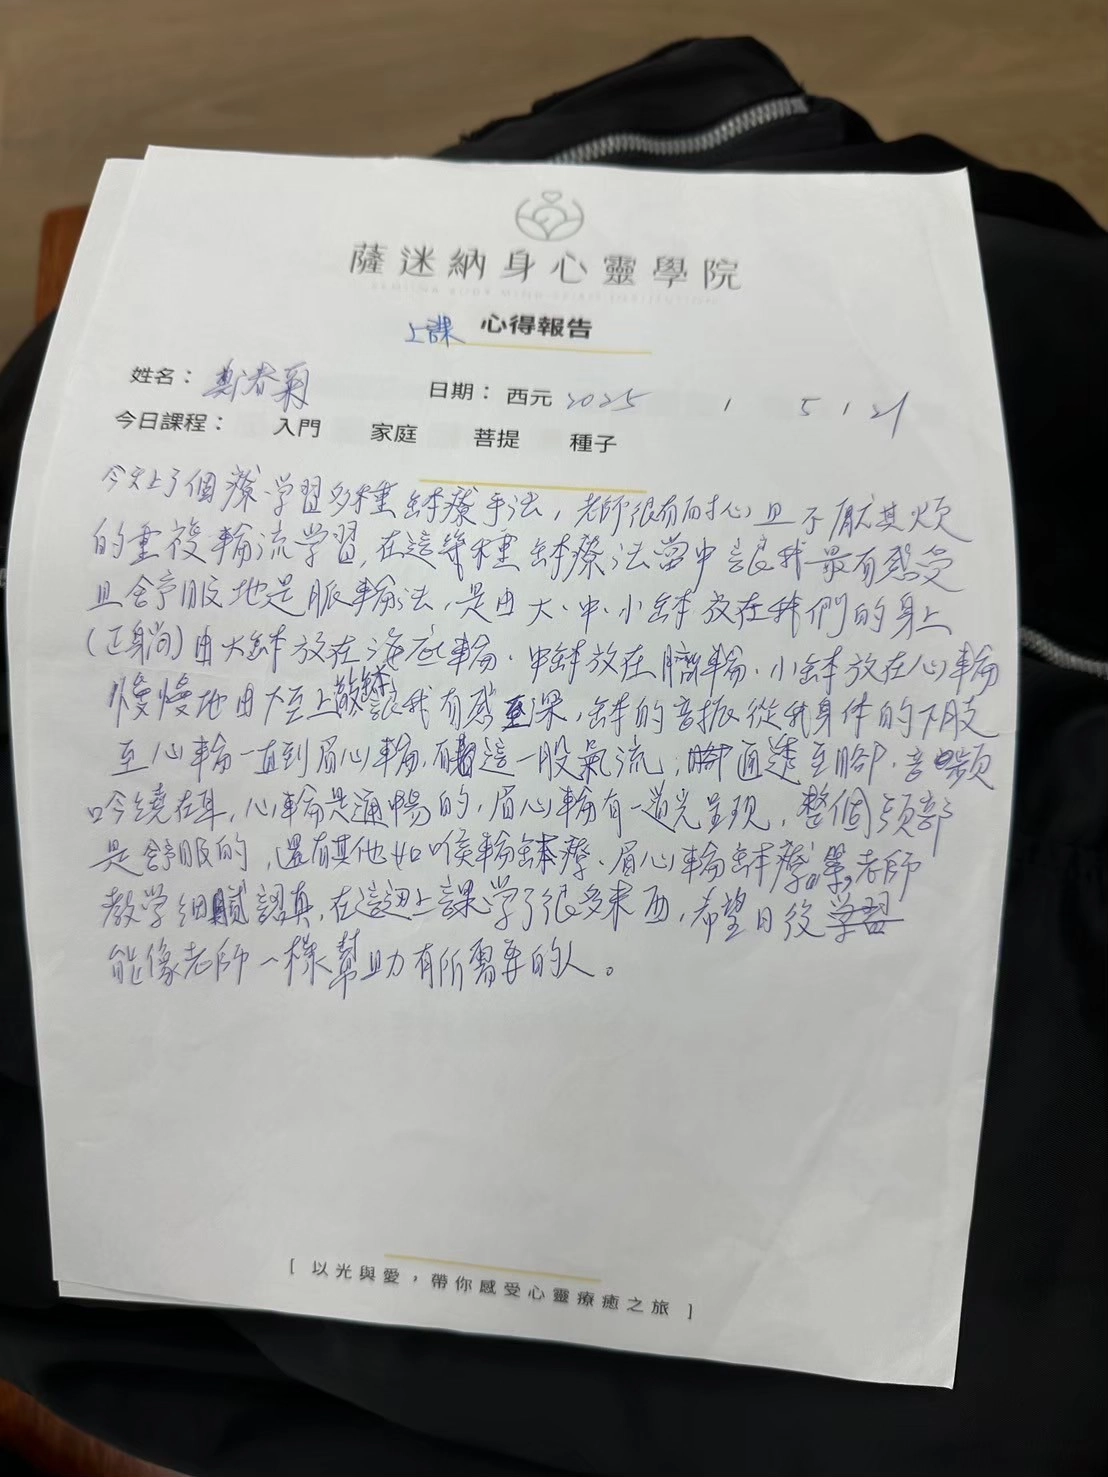 薩迷納身心靈學院
上課 心得報告
姓名： 鄭春菊 日期： 西元 2025 / 5 / 21
今日課程： 入門 家庭 菩提 種子
今天上了個療學習多種缽療手法，老師很有耐心且不厭其煩
的重複輪流學習，在這幾種缽療法當中讓我最有感受
且舒服地是脈輪法，是由大、中、小缽放在我們的身上
(正身尚)由大缽放在海底輪、中缽放在臍輪、小缽放在心輪
慢慢地由下至上敲缽讓我有感，缽的音振從我身体的下肢
至心輪一直到眉心輪，有這一股氣流，通透至腳，音頻
吟繞在耳，心輪是通暢的，眉心輪有一道光呈現，整個頭部
是舒服的，還有其他如喉輪缽療、眉心輪缽療等，老師
教学細膩認真，在這邊上課学了很多東西，希望日後学習
能像老師一樣幫助有所需要的人。
[ 以光與愛，帶你感受心靈療癒之旅 ]